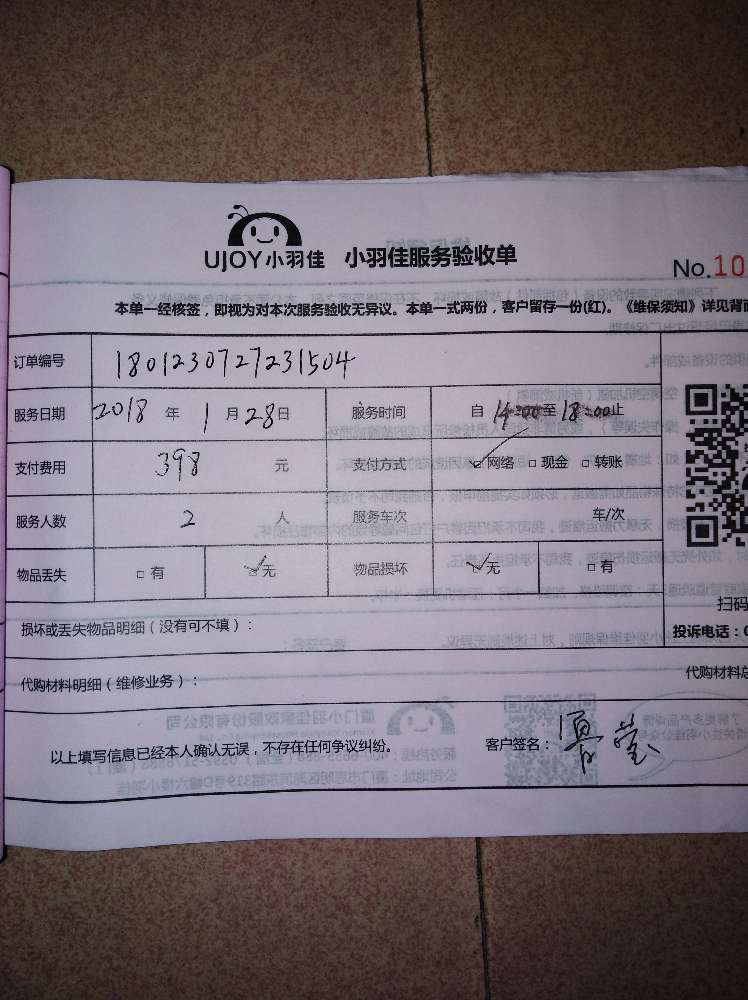 UJOY小羽佳 小羽佳服务验收单
No.10
本单一经核签，即视为对本次服务验收无异议。本单一式两份，客户留存一份(红)。《维保须知》详见背面
订单编号 1801230727231504
服务日期 2018 年 1 月 28 日 服务时间 自 14:00 至 18:00 止
支付费用 398 元 支付方式 ☑网络 □现金 □转账
服务人数 2 人 服务车次 车/次
物品丢失 □有 ☑无 物品损坏 ☑无 □有
扫码
损坏或丢失物品明细（没有可不填）：
投诉电话：0
代购材料明细（维修业务）：
代购材料总
以上填写信息已经本人确认无误，不存在任何争议纠纷。 客户签名：